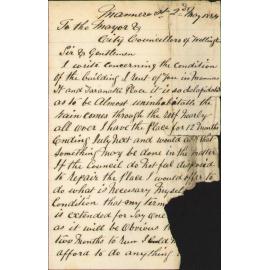 Manners St 2nd May 1884
To the Mayor &
City Councillors of Wellingt
Sir & Gentlemen
I write concerning the Condition
of the building I rent of you in Manners
St and Taranaki Place it is so delapidated
as to be almost uninhabitable the
rain comes through the roof nearly
all over I have the place for 12 months
Ending July next and would ask that
something may be done in the matter
If the Council do not feel disposed
to repair the place I would offer to
do what is necessary myself
Condition that my term
is extended for say one
as it will be obvious th
two months to run I could n
afford to do anything